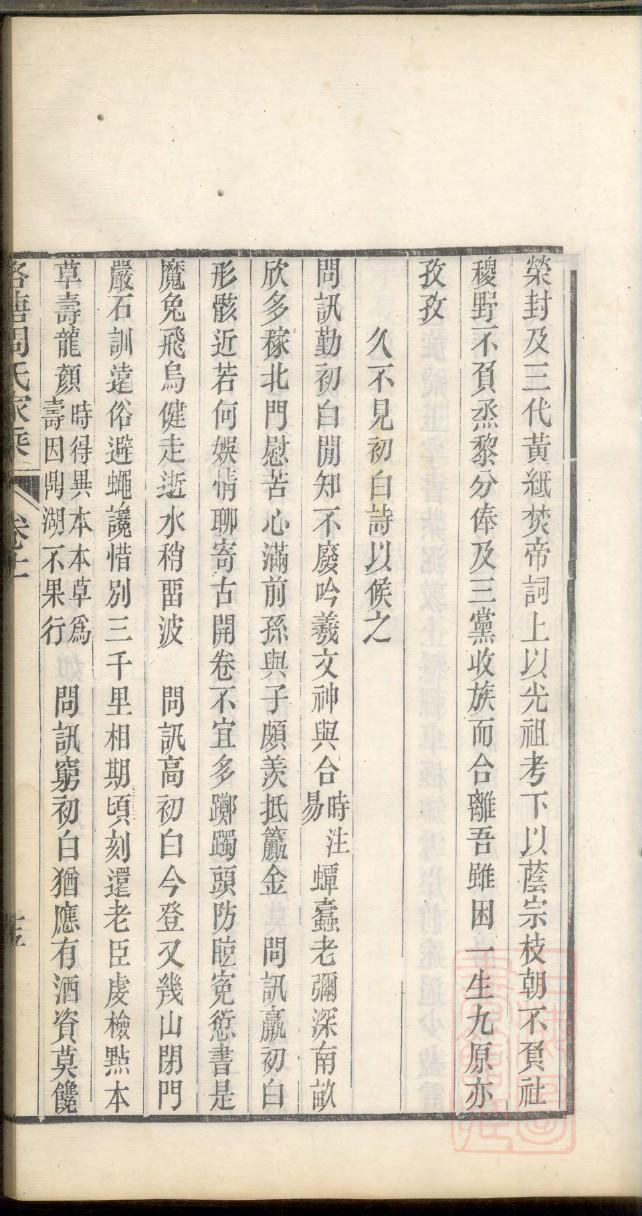 榮封及三代黃紙焚帝詞上以光祖考下以蔭宗枝朝不負社
稷野不負烝黎分俸及三黨收族而合離吾雖困一生九原亦
孜孜
久不見初白詩以候之
問訊勤初白閒知不廢吟羲文神與合時注易蟫蠹老彌深南畝
欣多稼北門慰苦心滿前孫與子頗羨抵籯金 問訊羸初白
形骸近若何娛情聊寄古開卷不宜多躑躅頭防眩寃愆書是
魔兔飛烏健走逝水稍畱波 問訊高初白今登又幾山閉門
嚴石訓遠俗避蠅讒惜別三千里相期頃刻還老臣虔檢點本
草壽龍顏時得異本本草爲壽因鼎湖不果行 問訊窮初白猶應有酒資莫饞
周氏家乘 卷十一